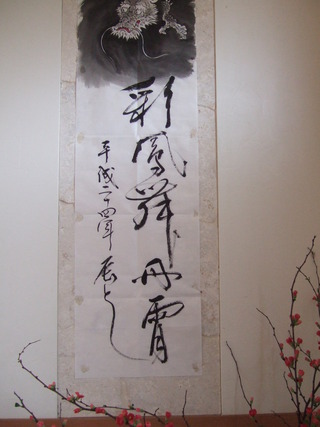 彩鳳舞丹霄
平成二十四年 辰とし